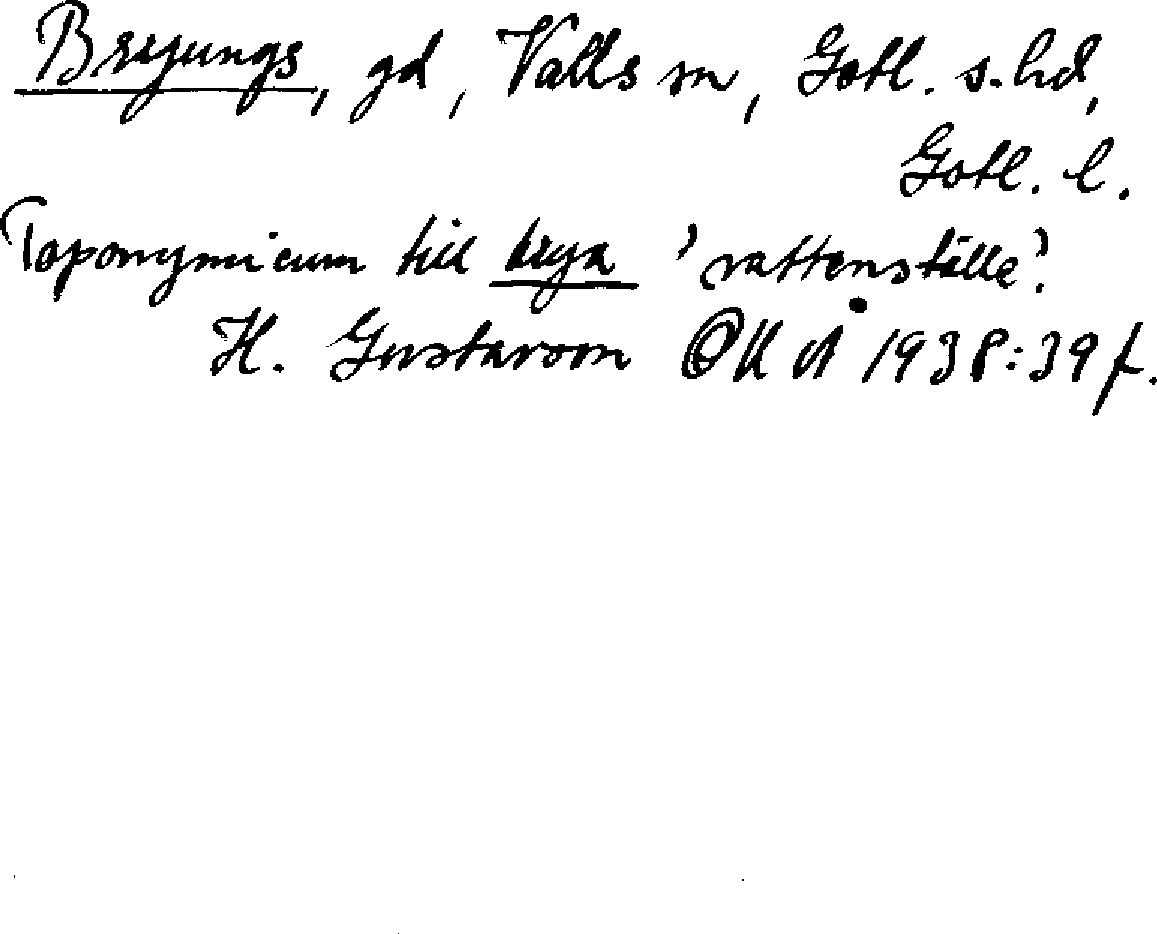 Bryungs, gd, Valls sn, Gotl. s. hd,
Gotl. l.
Toponymicum till brya 'vattenställe'.
H. Gustavson GHÅ 1938:39 f.